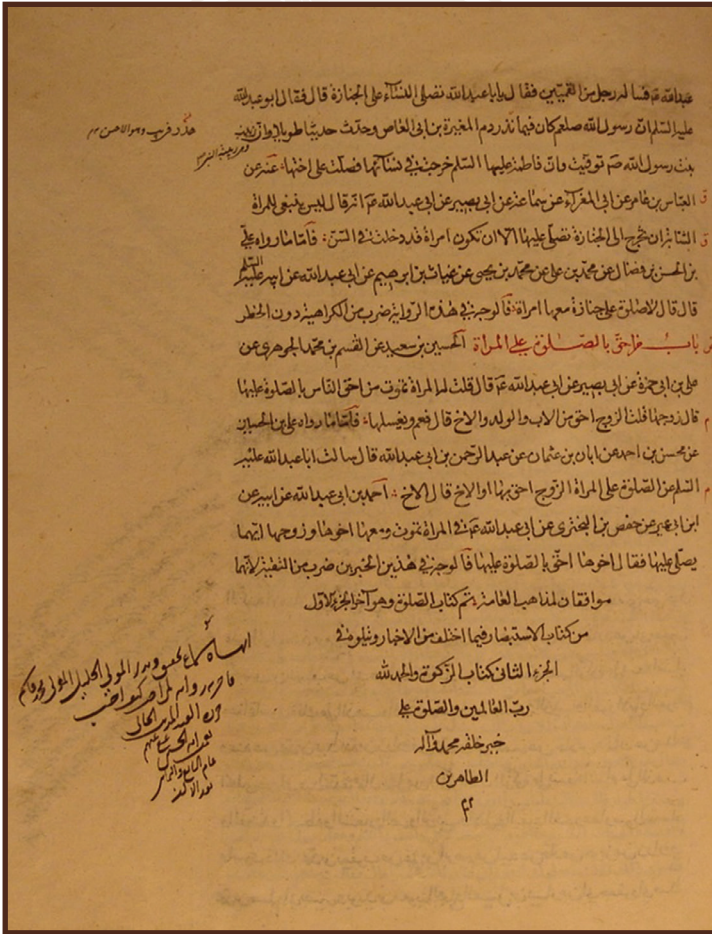 عبدالله ع فساله رجل من القميين فقال يا با عبدالله تصلى النساء على الجنازة قال فقال ابو عبدالله
عليه السلم ان رسول الله صلعم كان فيما نذر دم المغيرة بن ابى العاص وحدث حديثا طويلا وان زينب
بنت رسول الله ص توفيت وان فاطمة عليها السلم خرجت فى نسائها فصلت على اختها عنه عن
العباس بن عامر عن ابى المغراء عن سماعة عن ابى بصير عن ابى عبدالله ع انه قال ليس ينبغى للمراة
الشابة ان تخرج الى الجنازة تصلى عليها الا ان تكون امراة قد دخلت فى السن فاما ما رواه على
بن الحسن بن فضال عن محمد بن على عن محمد بن يحيى عن غياث بن ابرهيم عن ابى عبدالله عن ابيه عليه السلم
قال قال لا صلوة على جنازة معها امراة فالوجه فى هذه الرواية ضرب من الكراهية دون الحظر
باب من احق بالصلوة على المراة الحسين بن سعيد عن القسم بن محمد الجوهرى عن
على بن ابى حمزة عن ابى بصير عن ابى عبدالله ع قال قلت له المراة تموت من احق الناس بالصلوة عليها
قال زوجها قلت الزوج احق من الاب والولد والاخ قال نعم ويغسلها فاما ما رواه على بن الحسين
عن محسن بن احمد عن ابان بن عثمان عن عبد الرحمن بن ابى عبدالله قال سالت ابا عبدالله عليه
السلم عن الصلوة على المراة الزوج احق بها او الاخ قال الاخ احمد بن ابى عبدالله عن ابيه عن
ابن ابى عمير عن حفص بن البخترى عن ابى عبدالله ع فى المراة تموت ومعها اخوها وزوجها ايهما
يصلى عليها فقال اخوها احق بالصلوة عليها فالوجه فى هذين الخبرين ضرب من التقية لانهما
موافقان لمذاهب العامة تم كتاب الصلوة وهو آخر الجزء الاول
من كتاب الاستبصار فيما اختلف من الاخبار ويتلوه فى
الجزء الثانى كتاب الزكوة والحمد لله
رب العالمين والصلوة على
خير خلقه محمد وآله
الطاهرين